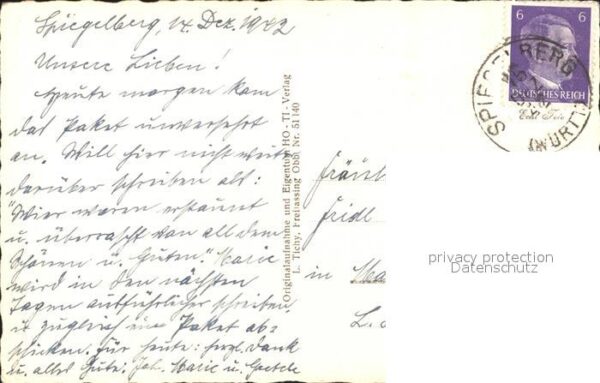 Spiegelberg, 14. Dez. 1942
Unsere Lieben!
Heute morgen kam
das Paket unversehrt
an. Will hier nicht weiter
darüber schreiben als:
"Wier waren erstaunt
u. überrascht von all dem
Schönen u. Guten." Marie
wird in den nächsten
Tagen ausführlicher schreiben
u. zugleich ein Paket ab-
schicken. Für heute: herzl. Dank
u. alles Gute: Joh. Marie u. Gretele
Originalaufnahme und Eigentum HO-TI-Verlag
L. Tichy, Freilassing Obb. Nr. 51140
6 6
DEUTSCHES REICH
SPIEGELBERG
(WÜRTT)
Fräul
Fridl
in Ma
L.
privacy protection
Datenschutz